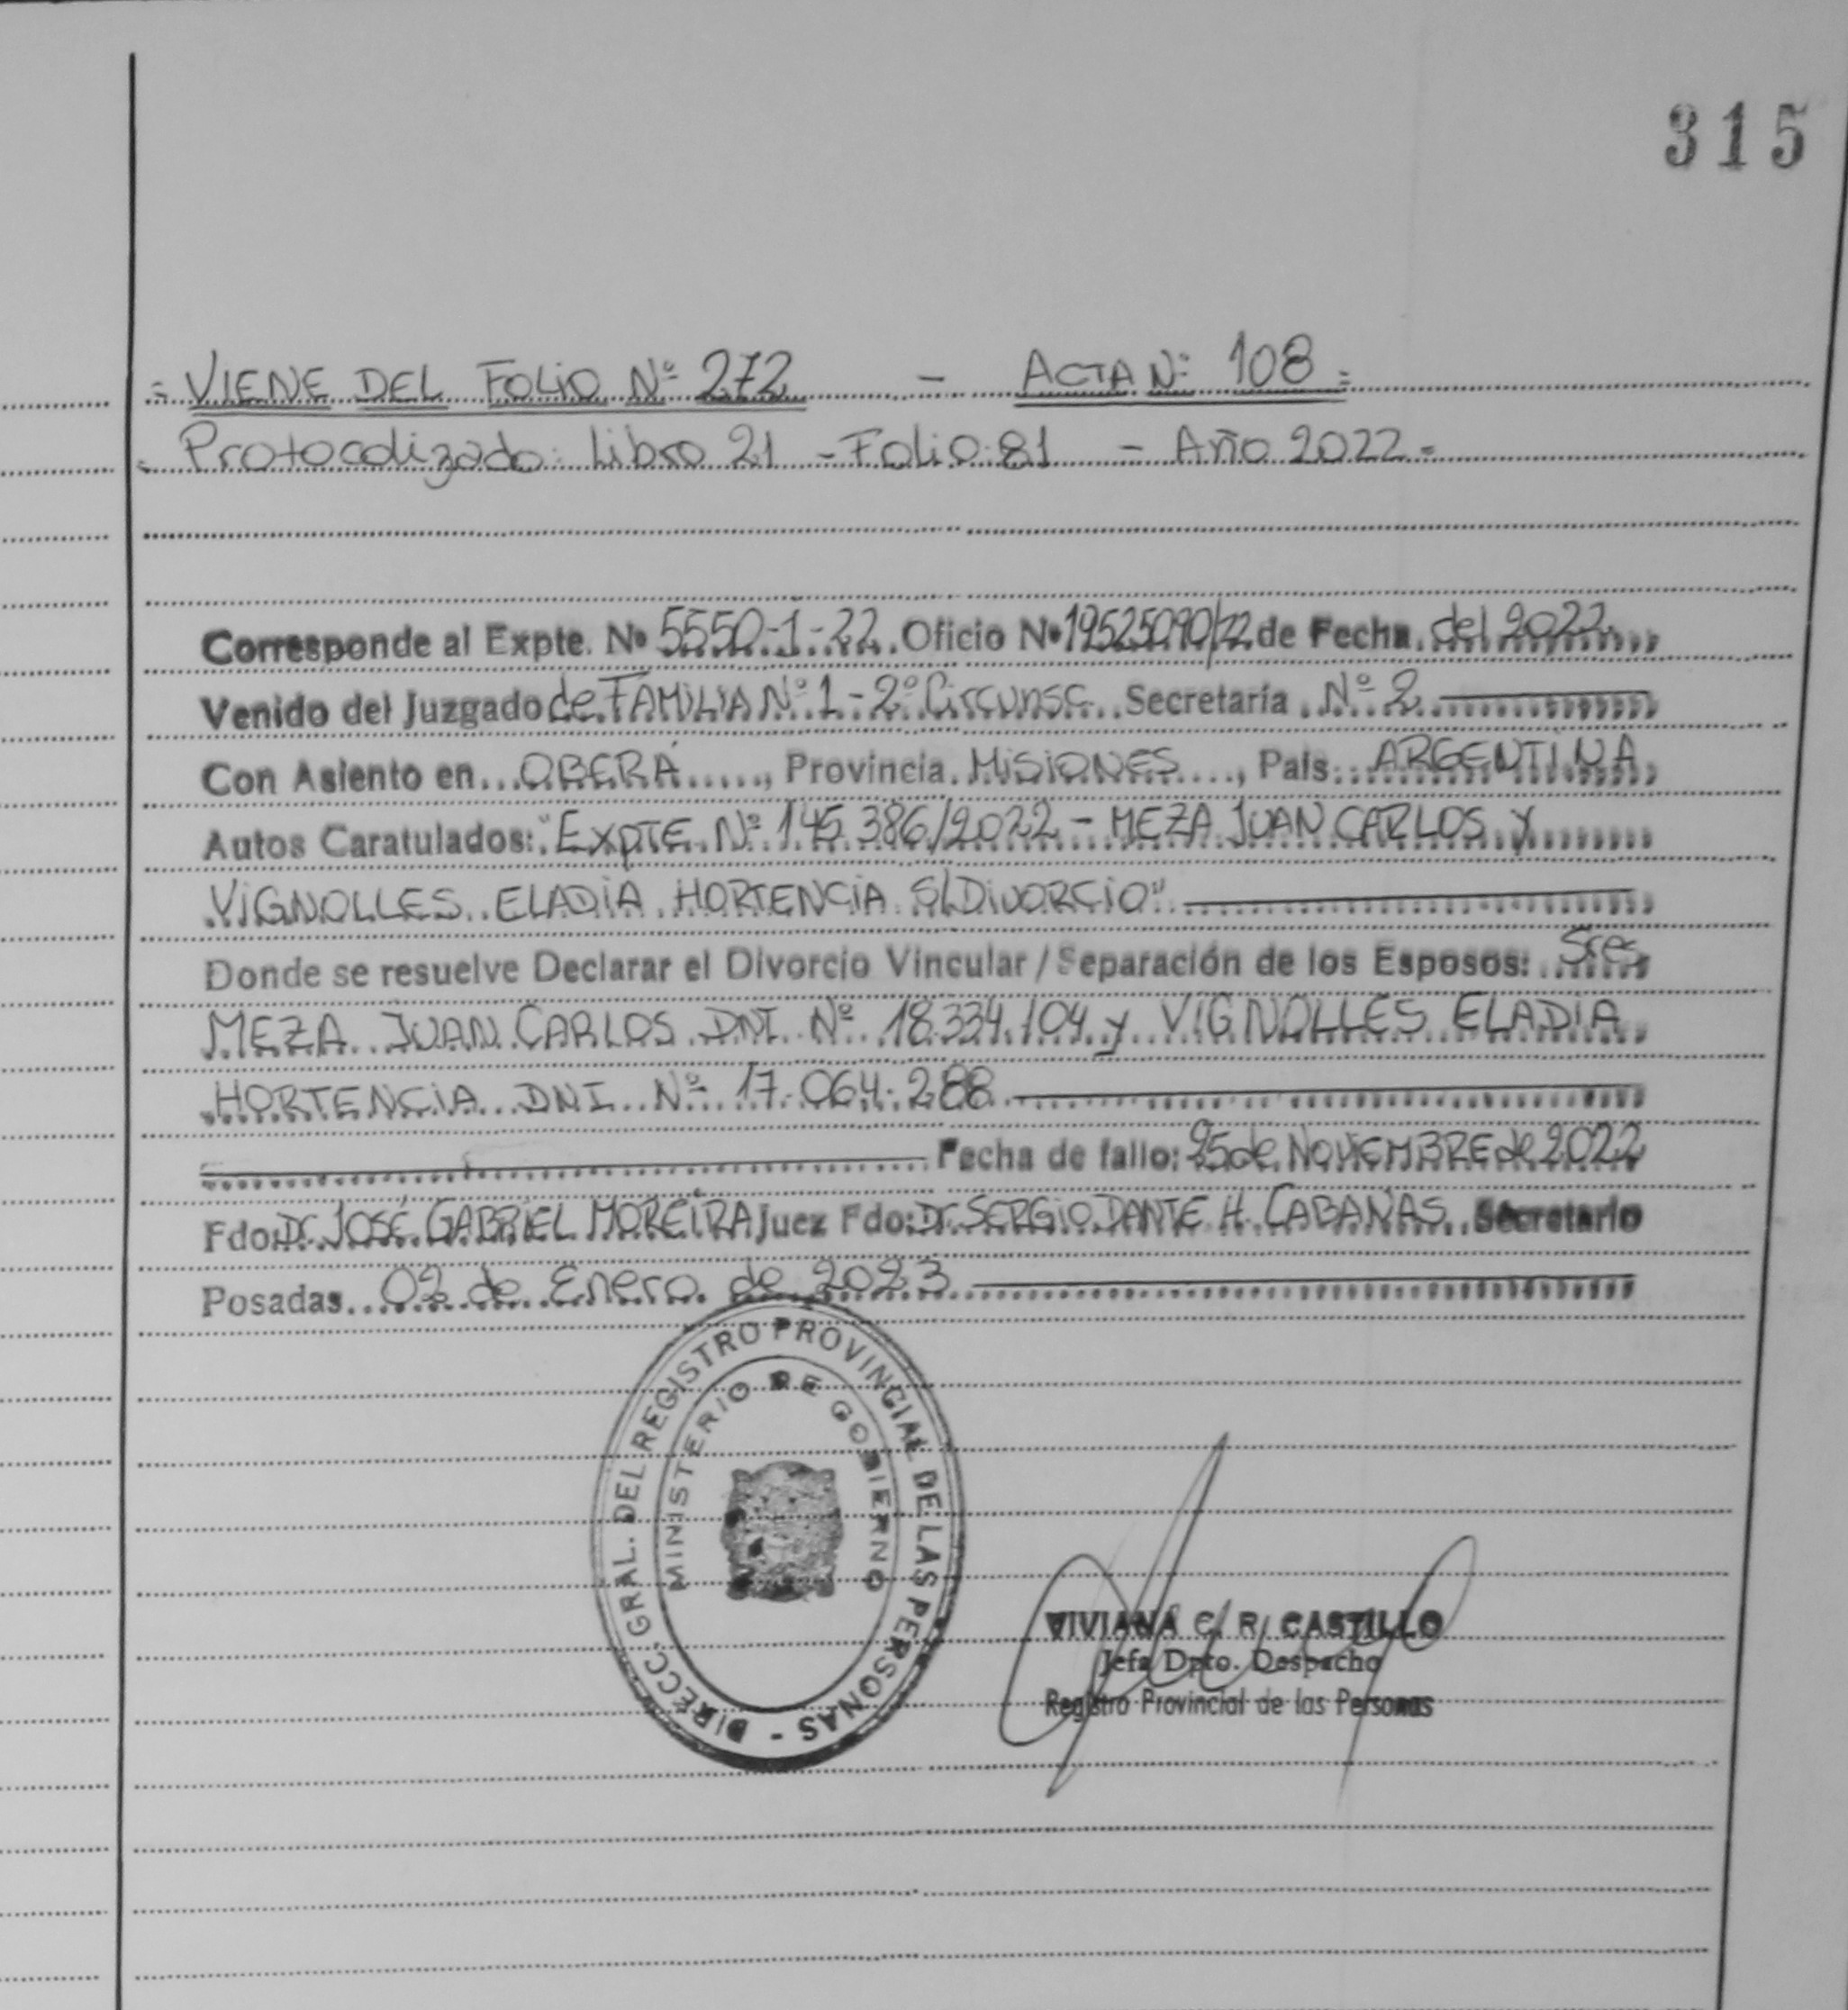 315
= VIENE DEL FOLIO Nº 272 - ACTA Nº 108 =
Protocolizado: Libro 21 - Folio: 81 - Año 2022 =
Corresponde al Expte. Nº 5550-1-22. Oficio Nº 19525090/22 de Fecha del 2022
Venido del Juzgado de FAMILIA Nº 1 - 2º Circunsc. Secretaría Nº 2
Con Asiento en OBERÁ, Provincia MISIONES, País ARGENTINA
Autos Caratulados: "EXPTE. Nº 145.386/2022 - MEZA JUAN CARLOS y
VIGNOLLES ELADIA HORTENCIA S/DIVORCIO"
Donde se resuelve Declarar el Divorcio Vincular / Separación de los Esposos: Sres
MEZA JUAN CARLOS DNI Nº 18.334.104 y VIGNOLLES ELADIA
HORTENCIA DNI Nº 17.064.288
Fecha de fallo: 25 de NOVIEMBRE de 2022
Fdo: Dr. JOSÉ GABRIEL MOREIRA Juez Fdo: Dr. SERGIO DANTE H. CABAÑAS Secretario
Posadas 02 de Enero de 2023
DIRECC. GRAL. DEL REGISTRO PROVINCIAL DE LAS PERSONAS -
MINISTERIO DE GOBIERNO
VIVIANA C. R. CASTILLO
Jefa Dpto. Despacho
Registro Provincial de las Personas